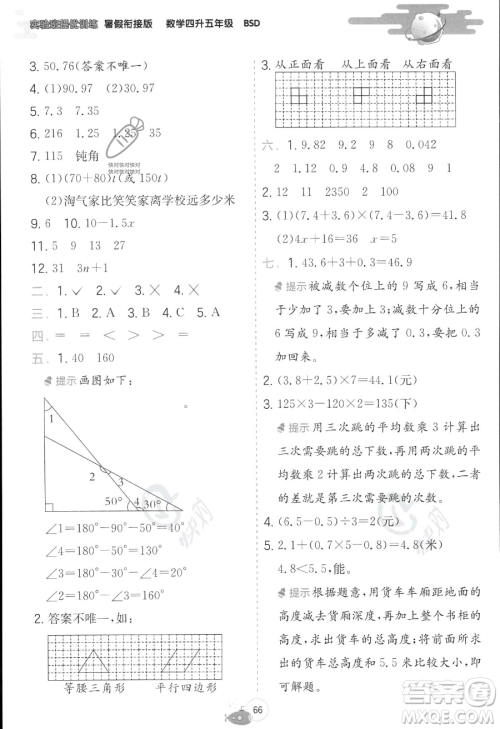 实验班提优训练 暑假衔接版 数学四升五年级 BSD
3. 50.76(答案不唯一)
4. (1)10 (2)40
5. 7.3 7.35
6. 216 1.25 1.25 16
7. 115 钝角
快对快对快对
快对快对快对
8. (1)(70+80)t(或150t)
(2)淘气家比笑笑家离学校远多少米
9. 6 10. 10-1.5x
11. 5 9 13 27
12. 31 3n+1
二、1. ✓ 2. ✓ 3. × 4. ×
三、1. B 2. A 3. A 4. D 5. B
四、= < > = >
五、1. 40 160
提示 画图如下:
1
2
3
4
50°
30°
∠1=180°-90°-50°=40°
∠4=180°-50°-30°=100°
∠3=180°-100°=80°
∠2=180°-80°=100°
2. 答案不唯一,如:
等腰三角形 平行四边形
3. 从正面看 从上面看 从右面看
六、1. 9.19 8.2 9 0.042
2 1.8 0.48 0.82 1
2. 1.82 11.9 12.92
3. (1)(7.4+3.6)×(7.4-3.6)=41.8
(2)4x=16 x=4
七、1. 43.6+3+0.3=46.9
提示 被减数个位上的9写成6,相当于少加了3,被减数十分位上的5写成2,相当于少加了0.3,差也会相应减少3和0.3,所以要将3和0.3加回来。
2. (3.8+2.5)×7=44.1(元)
3. 125×3-120×2=135(下)
提示 用三次跳的平均数乘3计算出三次需要跳的总下数,用两次跳的平均数乘2计算出两次需要跳的总下数,二者的差就是第三次需要跳的次数。
4. (6.5-0.5)÷3=2(元)
5. 2.1+(0.7+0.65)×2=4.8(米)
4.8<5.5,能通过。
提示 根据题意可知,用货车车厢距地面的高度减去货厢深度,再加上整个书柜的高度,可以求出货车的总高度,再与5.5米进行比较,若小于5.5米,则可以通过,即可解题。
66
快对
答案圈
MXQE.COM